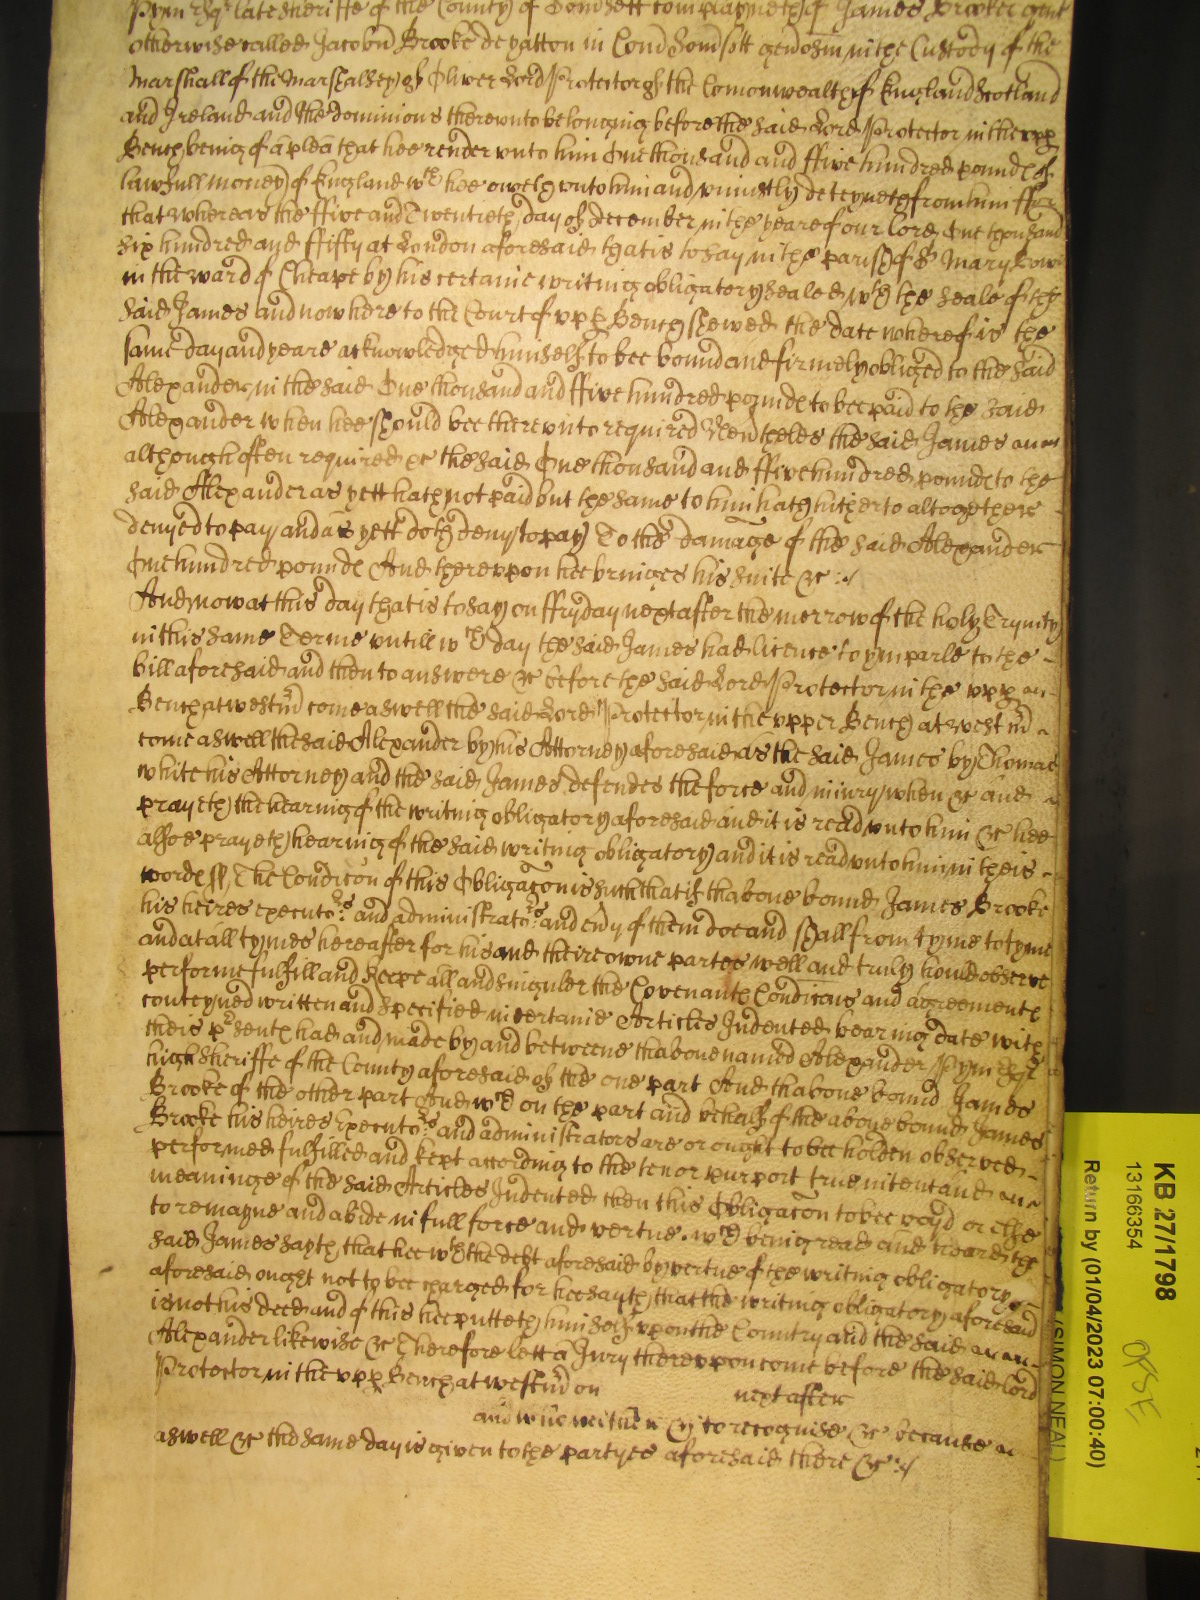 Pym Esqr late Sheriffe of the County of Somsett complayneth of James Brooke gent
otherwise called Jacobu Brooke de yatton in Com Somsett gen osm in the Custody of the
Marshall of the Marshalsey of Oliver Lord Protector of the Comonwealth of England Scotland
and Ireland and the dominions thereunto belonging before the said Lord Protector in the upp
Bench being of a plea that hee render unto him One thousand and ffive hundred pounde of
lawfull money of England wch hee oweth unto him and uniustly deteyneth from him ffor
that whereas the ffive and Twentieth day of december in the yeare of our lord One thousand
six hundred and ffifty at London aforesaid that is to say in the parish of St Mary Bow
in the ward of Cheape by his certaine writing obligatory sealed wth the seale of the
said James and now here to the Court of upp Bench shewed the date whereof is the
same day and yeare acknowledged himself to bee bound and firmely obliged to the said
Alexander in the said One thousand and ffive hundred pounde to bee paid to the said
Alexander when hee should bee thereunto required Neverthelesse the said James
although often required &c the said One thousand and ffive hundred pounde to the
said Alexander as yett hath not paid but the same to him hath hitherto altogether
denyed to pay and as yett doth deny to pay To the damage of the said Alexander
One hundred pounde And thereupon hee bringes his suite &c
And now at this day that is to say on ffryday next after the morrow of the holy Trynity
in this same Terme untill wch day the said James had licence to imparle to the
bill aforesaid and then to answere &c before the said Lord Protector in the upp
Bench at westmr come aswell the said Lord Protector in the upper Bench at westmr
come aswell the said Alexander by his Attorney aforesaid as the said James by Thomas
white his Attorney and the said James defendes the force and iniury when &c and
prayeth the hearing of the writing obligatory aforesaid and it is read unto him &c hee
alsoe prayeth hearing of the said writing obligatory and it is read unto him in theis
wordes ss The Condicon of this Obligacon is such that if thabove bound James Brooke
his heires executors and administrators and every of them doe and shall from tyme to tyme
and at all tymes hereafter for his and theire owne partes well and truly hould observe
performe fulfill and keepe all and singuler the Covenante Condicons and agreemente
conteyned written and specified in certaine Articles Indented bearing date with
theis psente had and made by and betweene thabove named Alexander Pym Esqr
high Sheriffe of the County aforesaid of the one part And thabove bound James
Brooke of the other part And wch on the part and behalf of the above bound James
Brooke his heires Executors and administrators are or ought to bee holden observed
performed fulfilled and kept according to the tenor purport true intent and
meaninge of the said Articles Indented then this Obligacon to bee voyd or else
to remayne and abide in full force and vertue. wch being read and heard the
said James sayth that hee wth the debt aforesaid by vertue of the writing obligatory
aforesaid ought not to bee charged for hee sayth that the writing obligatory aforesaid
is not his deed and of this hee putteth himself upon the Country and the said
Alexander likewise &c Therefore lett a Jury thereupon come before the said lord
Protector in the upp Bench at westmr on next after
and who neither &c to recognise &c because
aswell &c the same day is given to the partyes aforesaid there &c
KB 27/1798
13166354
Return by (01/04/2023 07:00:40)
(SIMON NEAL)